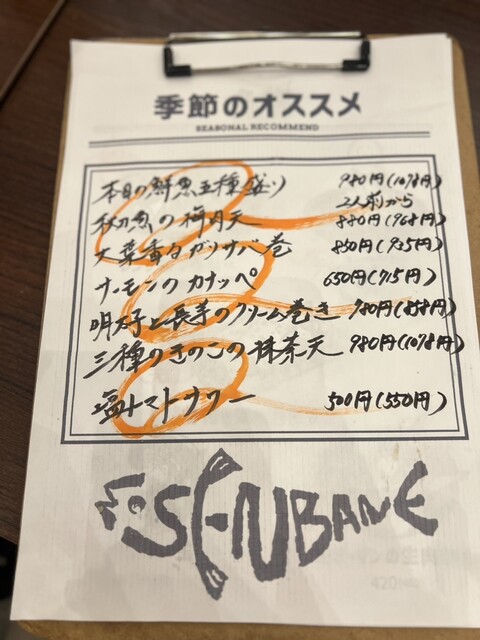 季節のオススメ
SEASONAL RECOMMEND
本日の鮮魚五種盛り 980円(1078円)
2人前から
秋刀魚の梅月天 880円(968円)
大葉香るガリサバ巻 850円(935円)
サーモンのカナッペ 650円(715円)
明太子と長芋のクリーム巻き 780円(858円)
三種のきのこの抹茶天 980円(1078円)
塩トマトサワー 500円(550円)
SENBANE